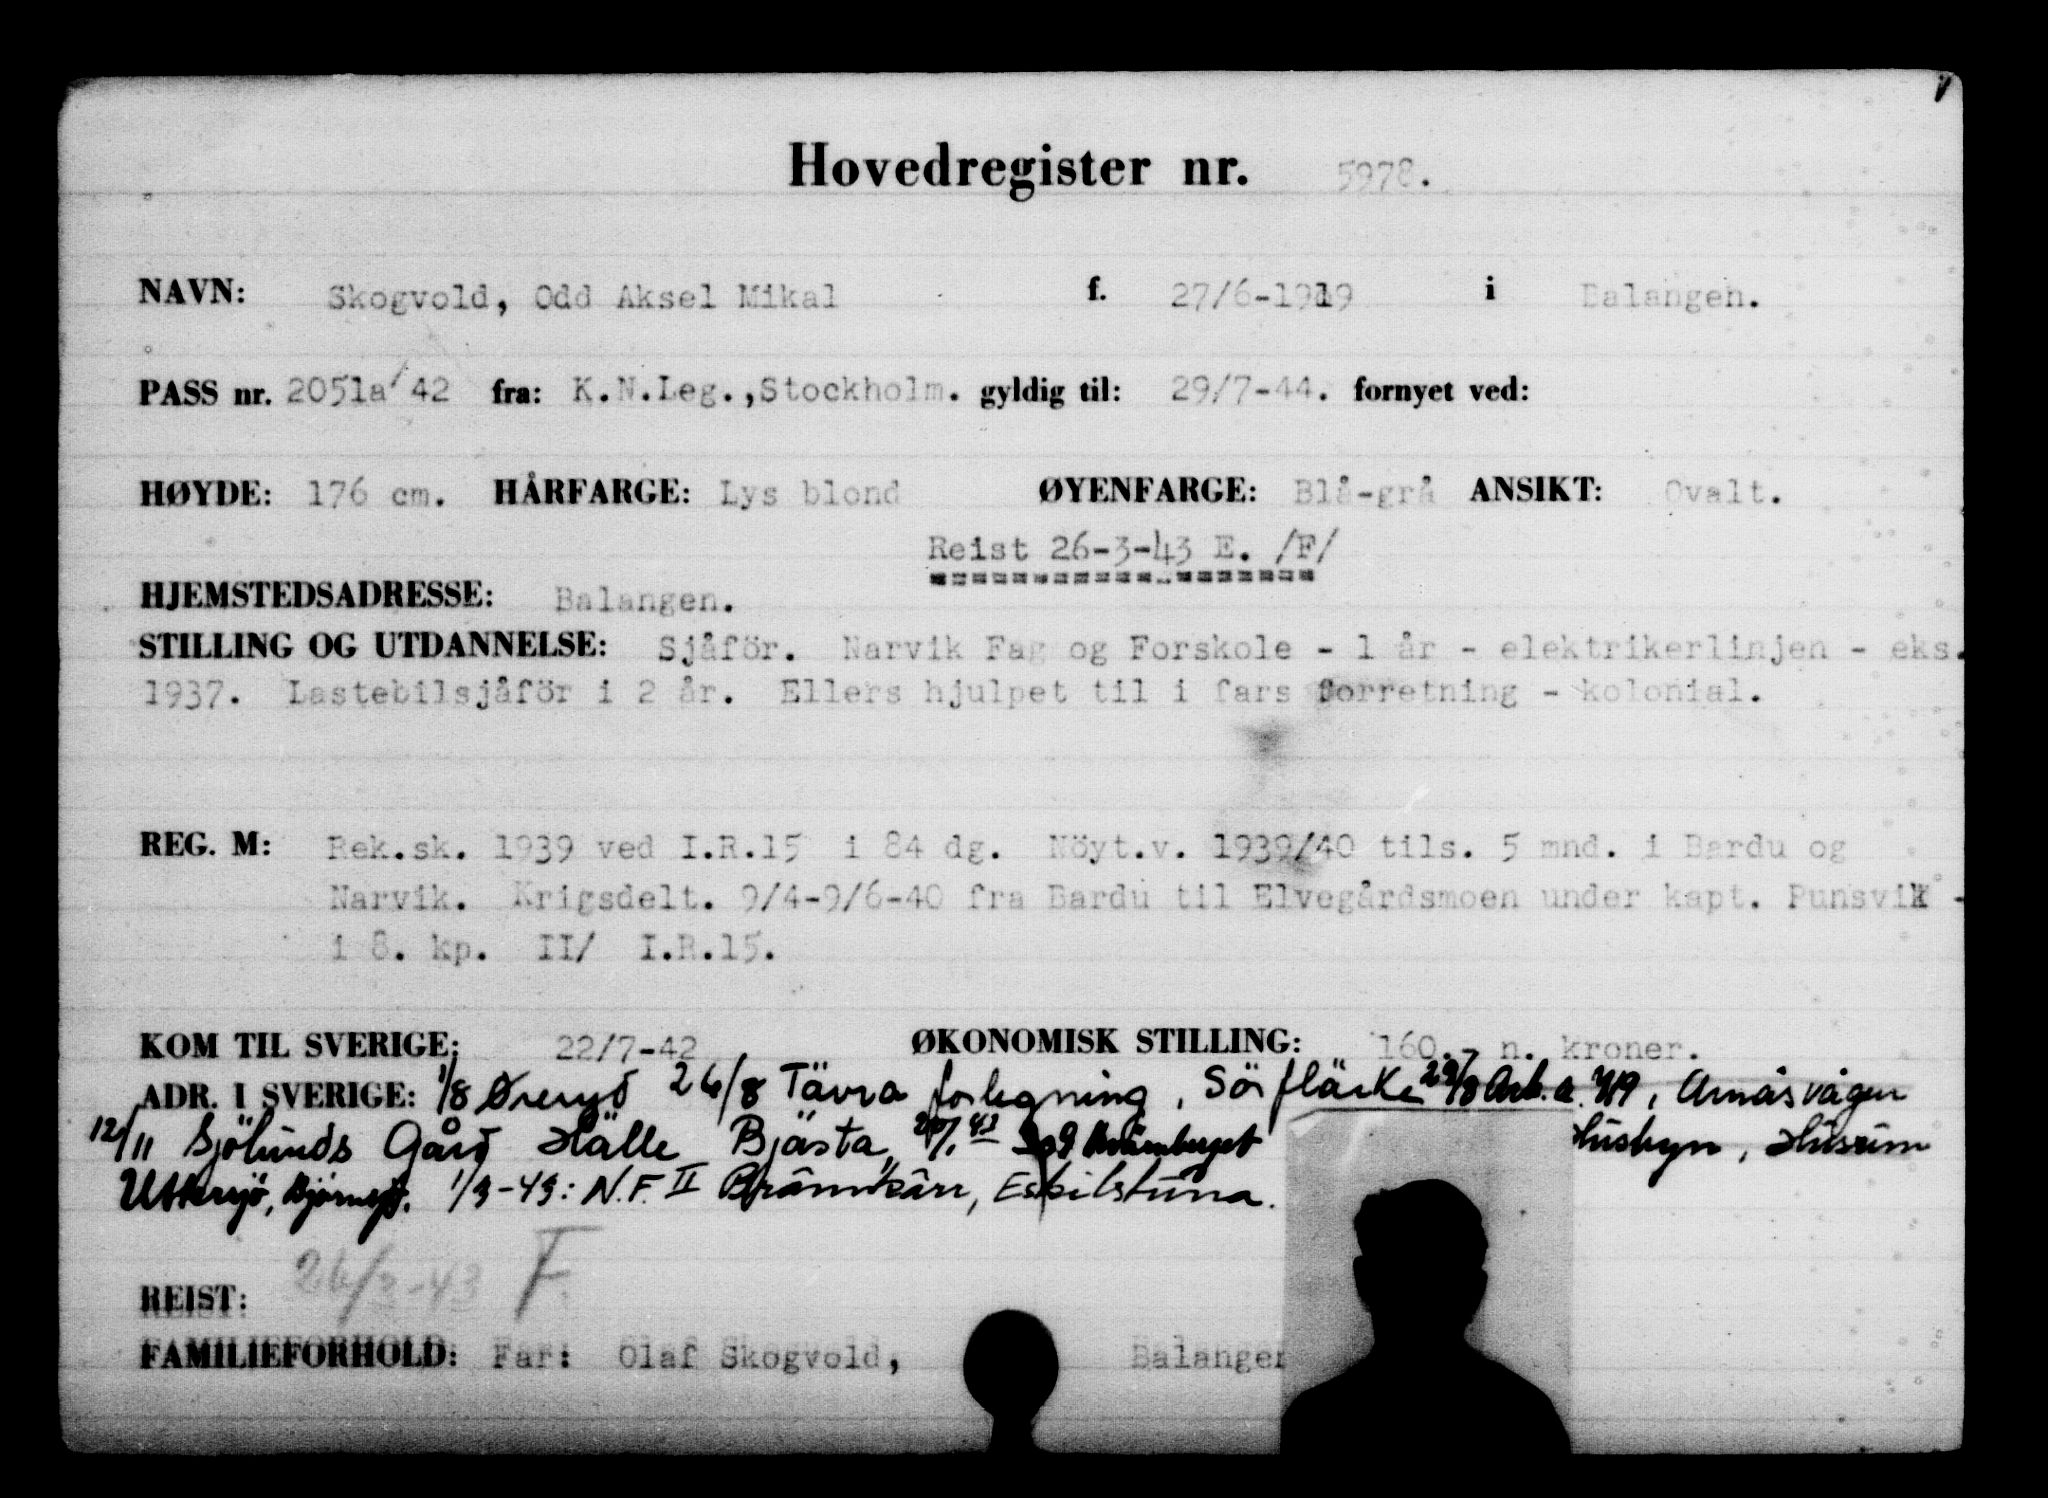 Hovedregister nr. 5978.
NAVN: Skogvold, Odd Aksel Mikal f. 27/6-1919 i Balangen.
PASS nr. 2051a/42 fra: K.N.Leg.,Stockholm. gyldig til: 29/7-44. fornyet ved:
HØYDE: 176 cm. HÅRFARGE: Lys blond ØYENFARGE: Blå-grå ANSIKT: Ovalt.
Reist 26-3-43 E. /F/
HJEMSTEDSADRESSE: Balangen.
STILLING OG UTDANNELSE: Sjåför. Narvik Fag og Forskole - 1 år - elektrikerlinjen - eks.
1937. Lastebilsjåför i 2 år. Ellers hjulpet til i fars forretning - kolonial.
REG. M: Rek.sk. 1939 ved I.R.15 i 84 dg. Nöyt.v. 1939/40 tils. 5 mnd. i Bardu og
Narvik. Krigsdelt. 9/4-9/6-40 fra Bardu til Elvegårdsmoen under kapt. Punsvik -
i 8. kp. II/ I.R.15.
KOM TIL SVERIGE: 22/7-42 ØKONOMISK STILLING: 160.- n. kroner.
ADR. I SVERIGE: 1/8 Öreryd 26/8 Tävra forlegning, Sörfläcke 29/8 Arb. a. 719, Arnäsvågen
12/11 Sjölunds Gård Hälle Bjästa, 20/1 43 Husbyn, Husum
Uttersjö, 1/3-43: N.F. II Brännkärr, Eskilstuna.
REIST: 26/3-43 F
FAMILIEFORHOLD: Far: Olaf Skogvold, Balangen